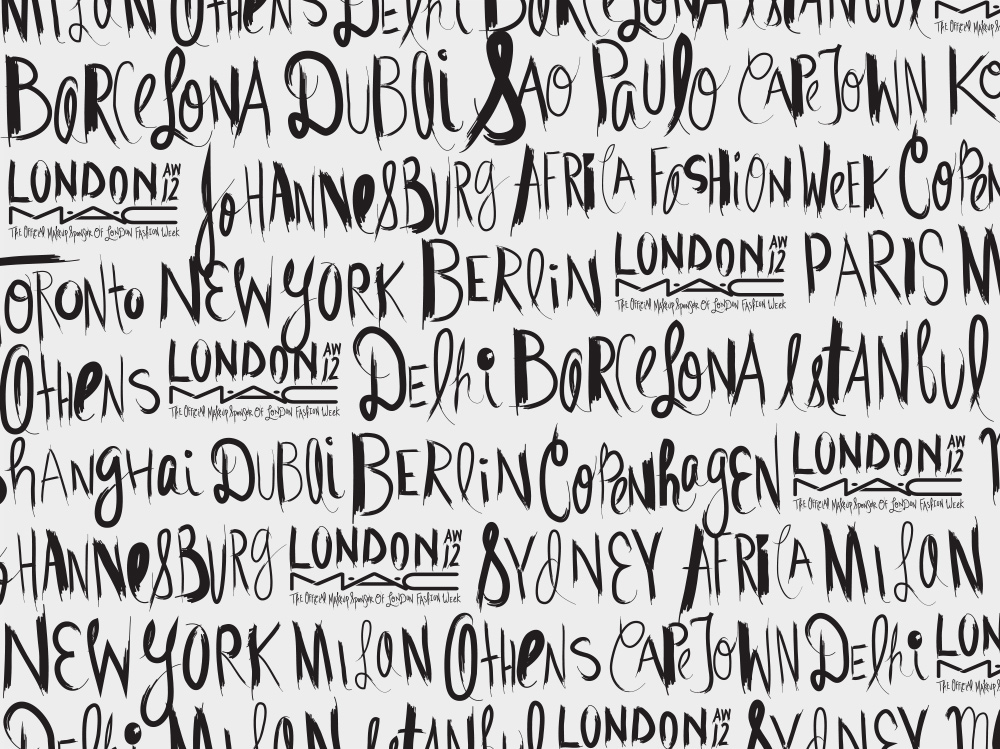 MiLaN OtHeNS Delhi BaRCeLoNA IstANbul
BaRCeLoNA DUBai Sao Paulo CAPeToWN Ko
LONDON AW 12 JoHANNeSBURg AFRiCA FaSHiON WeeK CoPeN
M·A·C
The Official Makeup Sponsor Of London Fashion Week
ORONto NEWYORK BERliN LONDON AW 12 PARIS M
M·A·C
The Official Makeup Sponsor Of London Fashion Week
OtHeNS LONDON AW 12 Delhi BaRCeLoNA IstANbul
M·A·C
The Official Makeup Sponsor Of London Fashion Week
hANgHai DUBai BERliN CoPeNhagEN LONDON AW 12
M·A·C
The Official Makeup Sponsor Of London Fashion Week
HANNeSBURg LONDON AW 12 SYdNEY AFRiCA MiLaN
M·A·C
The Official Makeup Sponsor Of London Fashion Week
NEWYORK MiLaN OtHeNS CAPeToWN Delhi LON
Delhi MiLaN IstANbul LONDON AW 12 SYdNEY